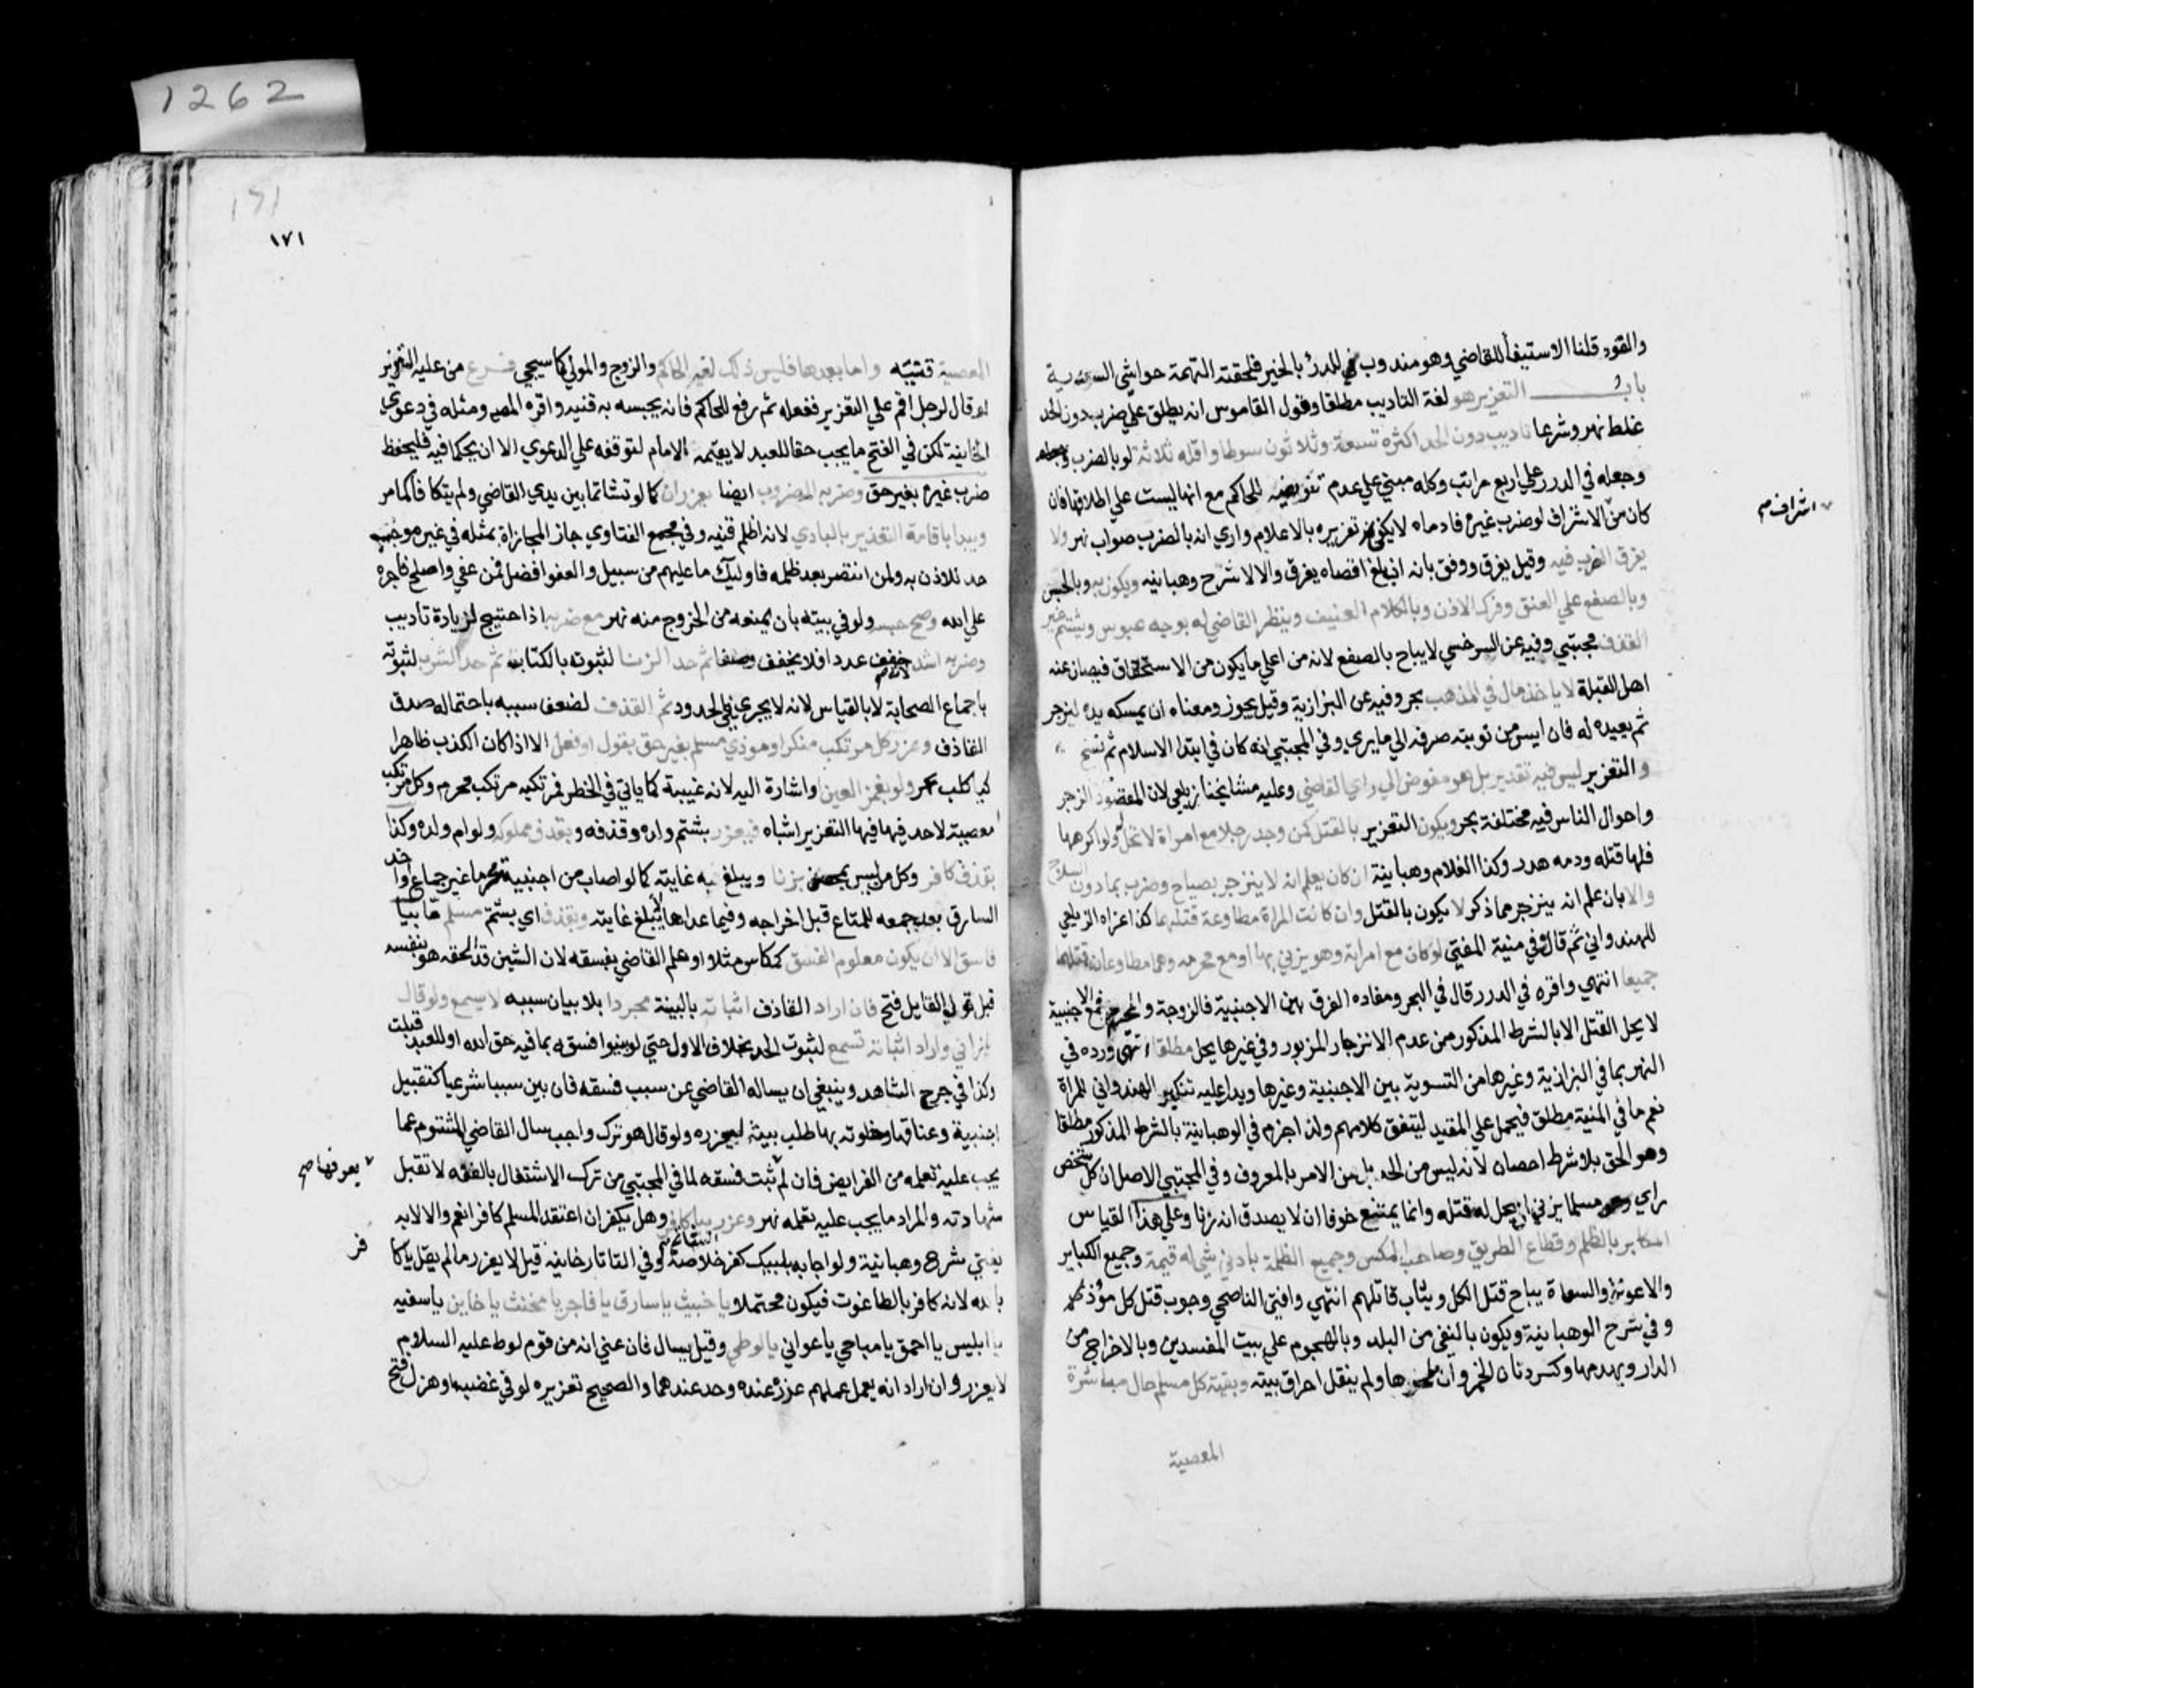 1262
والقود قلنا الاستيفأ للقاضي وهو مندوب للدرئ بالخبر فلحقته التهمة حواشي السعدية
باب التعزير هو لغة التاديب مطلقا وقول القاموس انه يطلق علي ضربه دون الحد
غلط نهر وشرعا تاديب دون الحد اكثره تسعة وثلاثون سوطا واقله ثلاثة لو بالضرب
وجعله في الدرر علي اربع مراتب وكله مبني علي عدم تفويضه للحاكم مع انها ليست علي اطلاقها فان
كان من الاشراف لو ضرب غيره فادماه لا يكفي تعزيره بالاعلام واري انه بالضرب صواب نهر ولا
اشراف صح
يفرق الضرب فيه وقيل يفرق ووفق بانه ان بلغ اقصاه يفرق والا لا شرح وهبانيه ويكون به وبالحبس
وبالصفع علي العنق وفرك الاذن وبالكلام العنيف وبنظر القاضي له بوجه عبوس وبشتم غير
القذف مجتبي وفيه عن السرخسي لا يباح بالصفع لانه من اعلي ما يكون من الاستخفاق فيصان عنه
اهل القبلة لا ياخذ مال في المذهب بحر وفيه عن البزازية وقيل يجوز ومعناه ان يمسكه مدة لينزجر
ثم يعيده له فان ايس من توبته صرفه الي ما يري وفي المجتبي انه كان في ابتدا الاسلام ثم نسخ
والتعزير ليس فيه تقدير بل هو مفوض الي راي القاضي وعليه مشايخنا زيلعي لان المقصود الزجر
واحوال الناس فيه مختلفة بحر ويكون التعزير بالقتل كمن وجد رجلا مع امراة لا تحل له ولو اكرهها
فلها قتله ودمه هدر وكذا الغلام وهبانية ان كان يعلم انه لا ينزجر بصياح وضرب بما دون السلاح
والا بان علم انه ينزجر مما ذكر لا يكون بالقتل وان كانت المراة مطاوعة قتلهما كذا عزاه الزيلعي
للهندواني ثم قال وفي منية المفتي لو كان مع امراته وهو يزني بها او مع محرمه وهما مطاوعان قتلهما
جميعا انتهي واقره في الدرر قال في البحر ومفاده الفرق بين الاجنبية والزوجة والمحرم فمع الاجنبية
لا يحل القتل الا بالشرط المذكور من عدم الانزجار المزبور وفي غيرها يحل مطلقا انتهي ورده في
النهر بما في البزازية وغيرها من التسوية بين الاجنبية وغيرها ويدل عليه تنكير الهندواني للمراة
نعم ما في المنية مطلق فيحمل علي المقيد ليتفق كلامهم ولذا جزم في الوهبانية بالشرط المذكور مطلقا
وهو الحق بلا شرط احصان لانه ليس من الحد بل من الامر بالمعروف وفي المجتبي الاصل ان كل شخص
راي مسلما يزني ان يحل له قتله وانما يمتنع خوفا ان لا يصدق انه زنا وعلي هذا القياس
المكابر بالظلم وقطاع الطريق وصاحب المكس وجميع الظلمة بادني شي له قيمة وجميع الكباير
والاعونة والسعاة يباح قتل الكل ويثاب قاتلهم انتهي وافتي الناصحي بوجوب قتل كل مؤذ
وفي شرح الوهبانية ويكون بالنفي من البلد وبالهجوم علي بيت المفسدين وبالاخراج من
الدار وبهدمها وكسر دنان الخمر وان ملحوها ولم ينقل احراق بيته ويقيمه كل مسلم حال مباشرة
المعصية
١٧١
١٧١
المعصية قنيه واما بعدها فليس ذلك لغير الحاكم والزوج والمولي كما سيجي فرع من عليه التعزير
لو قال لرجل اقم علي التعزير ففعله ثم رفع للحاكم فانه يحتسب به قنيه واقره المص ومثله في دعوي
الخانية لكن في الفتح ما يجب حقا للعبد لا يقيمه الا الامام لتوقفه علي الدعوي الا ان يحكما فيه فليحفظ
ضرب غيره بغير حق وضربه المضروب ايضا يعزران كما لو تشاتما بين يدي القاضي ولم يتكافا كما مر
ويبدا باقامة التعزير بالبادي لانه اظلم قنيه وفي مجمع الفتاوي جاز المجازاة بمثله في غير موجب
حد للاذن به ولمن انتصر بعد ظلمه فاوليك ما عليهم من سبيل والعفو افضل فمن عفي واصلح فاجره
علي الله وصح حبسه ولو في بيته بان يمنعه من الخروج منه نهر مع ضربه اذا احتيج لزيادة تاديب
وضربه اشد لانه خفف عددا فلا يخفف وصفا ثم حد الزنا لثبوته بالكتاب ثم حد الشرب لثبوته
باجماع الصحابة لا بالقياس لانه لا يجري في الحدود ثم القذف لضعف سببه باحتماله صدق
القاذف وعزر كل مرتكب منكر او موذي مسلم بغير حق بقول او فعل الا اذا كان الكذب ظاهرا
كيا كلب بحر ولو بغمز العين واشارة اليه لانه غيبة كما ياتي في الخطر فمرتكبه مرتكب محرم وكل مرتكب
معصية لا حد فيها فيها التعزير اشباه فيعزر بشتم ولده وقذفه وبقذف مملوك ولو ام ولده وكذا
بقذف كافر وكل من ليس بمحصن بزنا ويبلغ به غايته كما لو اصاب من اجنبية محرما غير جماع او اخذ
السارق بعد جمعه للمتاع قبل اخراجه وفيما عداها لا يبلغ غايته وبقذف اي بشتم مسلم ما بيا
فاسق الا ان يكون معلوم الفسق كمكاس مثلا او علم القاضي بفسقه لان الشين قد الحقه هو بنفسه
قبل قول القايل فتح فان اراد القاذف اثباته بالبينة مجردا بلا بيان سببه لا يسمع ولو قال
يا زاني واراد اثباته تسمع لثبوت الحد بخلاف الاول حتي لو بينوا فسقه بما فيه حق لله او للعبد قبلت
وكذا في جرح الشاهد وينبغي ان يساله القاضي عن سبب فسقه فان بين سببا شرعيا كتقبيل
اجنبية وعناقها وخلوته بها طلب بينة ليعزره ولو قال هو ترك واجب سال القاضي المشتوم عما
يجب عليه تعلمه من الفرايض فان لم يعرفها ثبت فسقه لما في المجتبي من ترك الاشتغال بالفقه لا تقبل
يعرفها صح
شهادته والمراد ما يجب عليه تعلمه نهر وعزر بيا كافر وهل يكفر ان اعتقد المسلم كافرا نعم والا لا به
يفتي شرح وهبانية ولو اجابه بلبيك كفر خلاصة وفي التاتارخانيه قيل لا يعزر ما لم يقل يا كا
فر
بالله لانه كافر بالطاغوت فيكون محتملا يا خبيث يا سارق يا فاجر يا مخنث يا خاين يا سفيه
يا ابليس يا احمق يا مباحي يا عواني يا لوطي وقيل يسال فان عني انه من قوم لوط عليه السلام
لا يعزر وان اراد انه يعمل عملهم عزر عنده وحد عندهما والصحيح تعزيره لو في غضب او هزل فتح